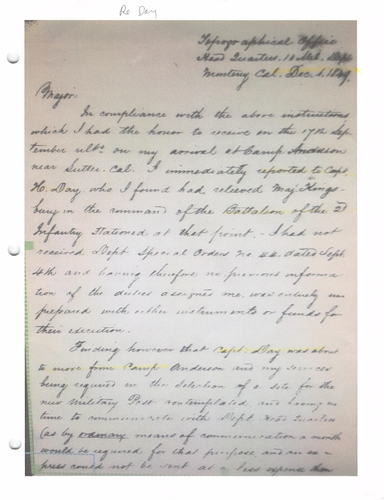 Re Day
Topographical Office
Head Quarters. 10 Mil. Dept
Monterey Cal. Dec. 1. 1849.
Major:
In compliance with the above instructions
which I had the honor to receive on the 17th Sep
tember ulto. on my arrival at Camp Anderson
near Sutter. Cal. I immediately reported to Capt.
H. Day, who I found had relieved Maj. Kings-
bury in the command of the Battalion of the 2d
Infantry stationed at that point. - I had not
received Dept Special Orders No. 44. dated Sept.
4th and having therefore no previous informa
tion of the duties assigned me, was entirely un
prepared with either instruments or funds for
their execution.
Finding however that Capt. Day was about
to move from Camp Anderson and my services
being required in the selection of a site for the
new Military Post contemplated and having no
time to communicate with Dept Head Quarters
(as by ordinary means of communication a month
would be required for that purpose and an ex-
press could not be sent at a less expense than